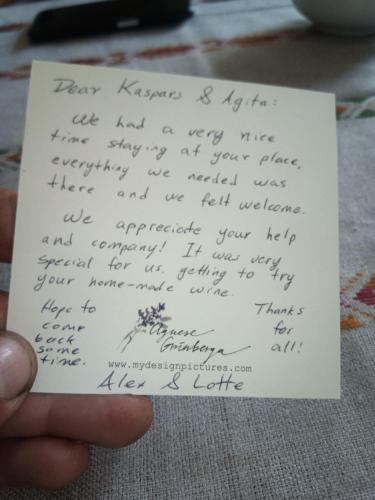 Dear Kaspars & Agita:
We had a very nice
time staying at your place,
everything we needed was
there and we felt welcome.
We appreciate your help
and company! It was very
special for us, getting to try
your home-made wine.
Hope to
come
back
some
time.
Agnese
Grinberga
Thanks
for
all!
www.mydesignpictures.com
Alex & Lotte